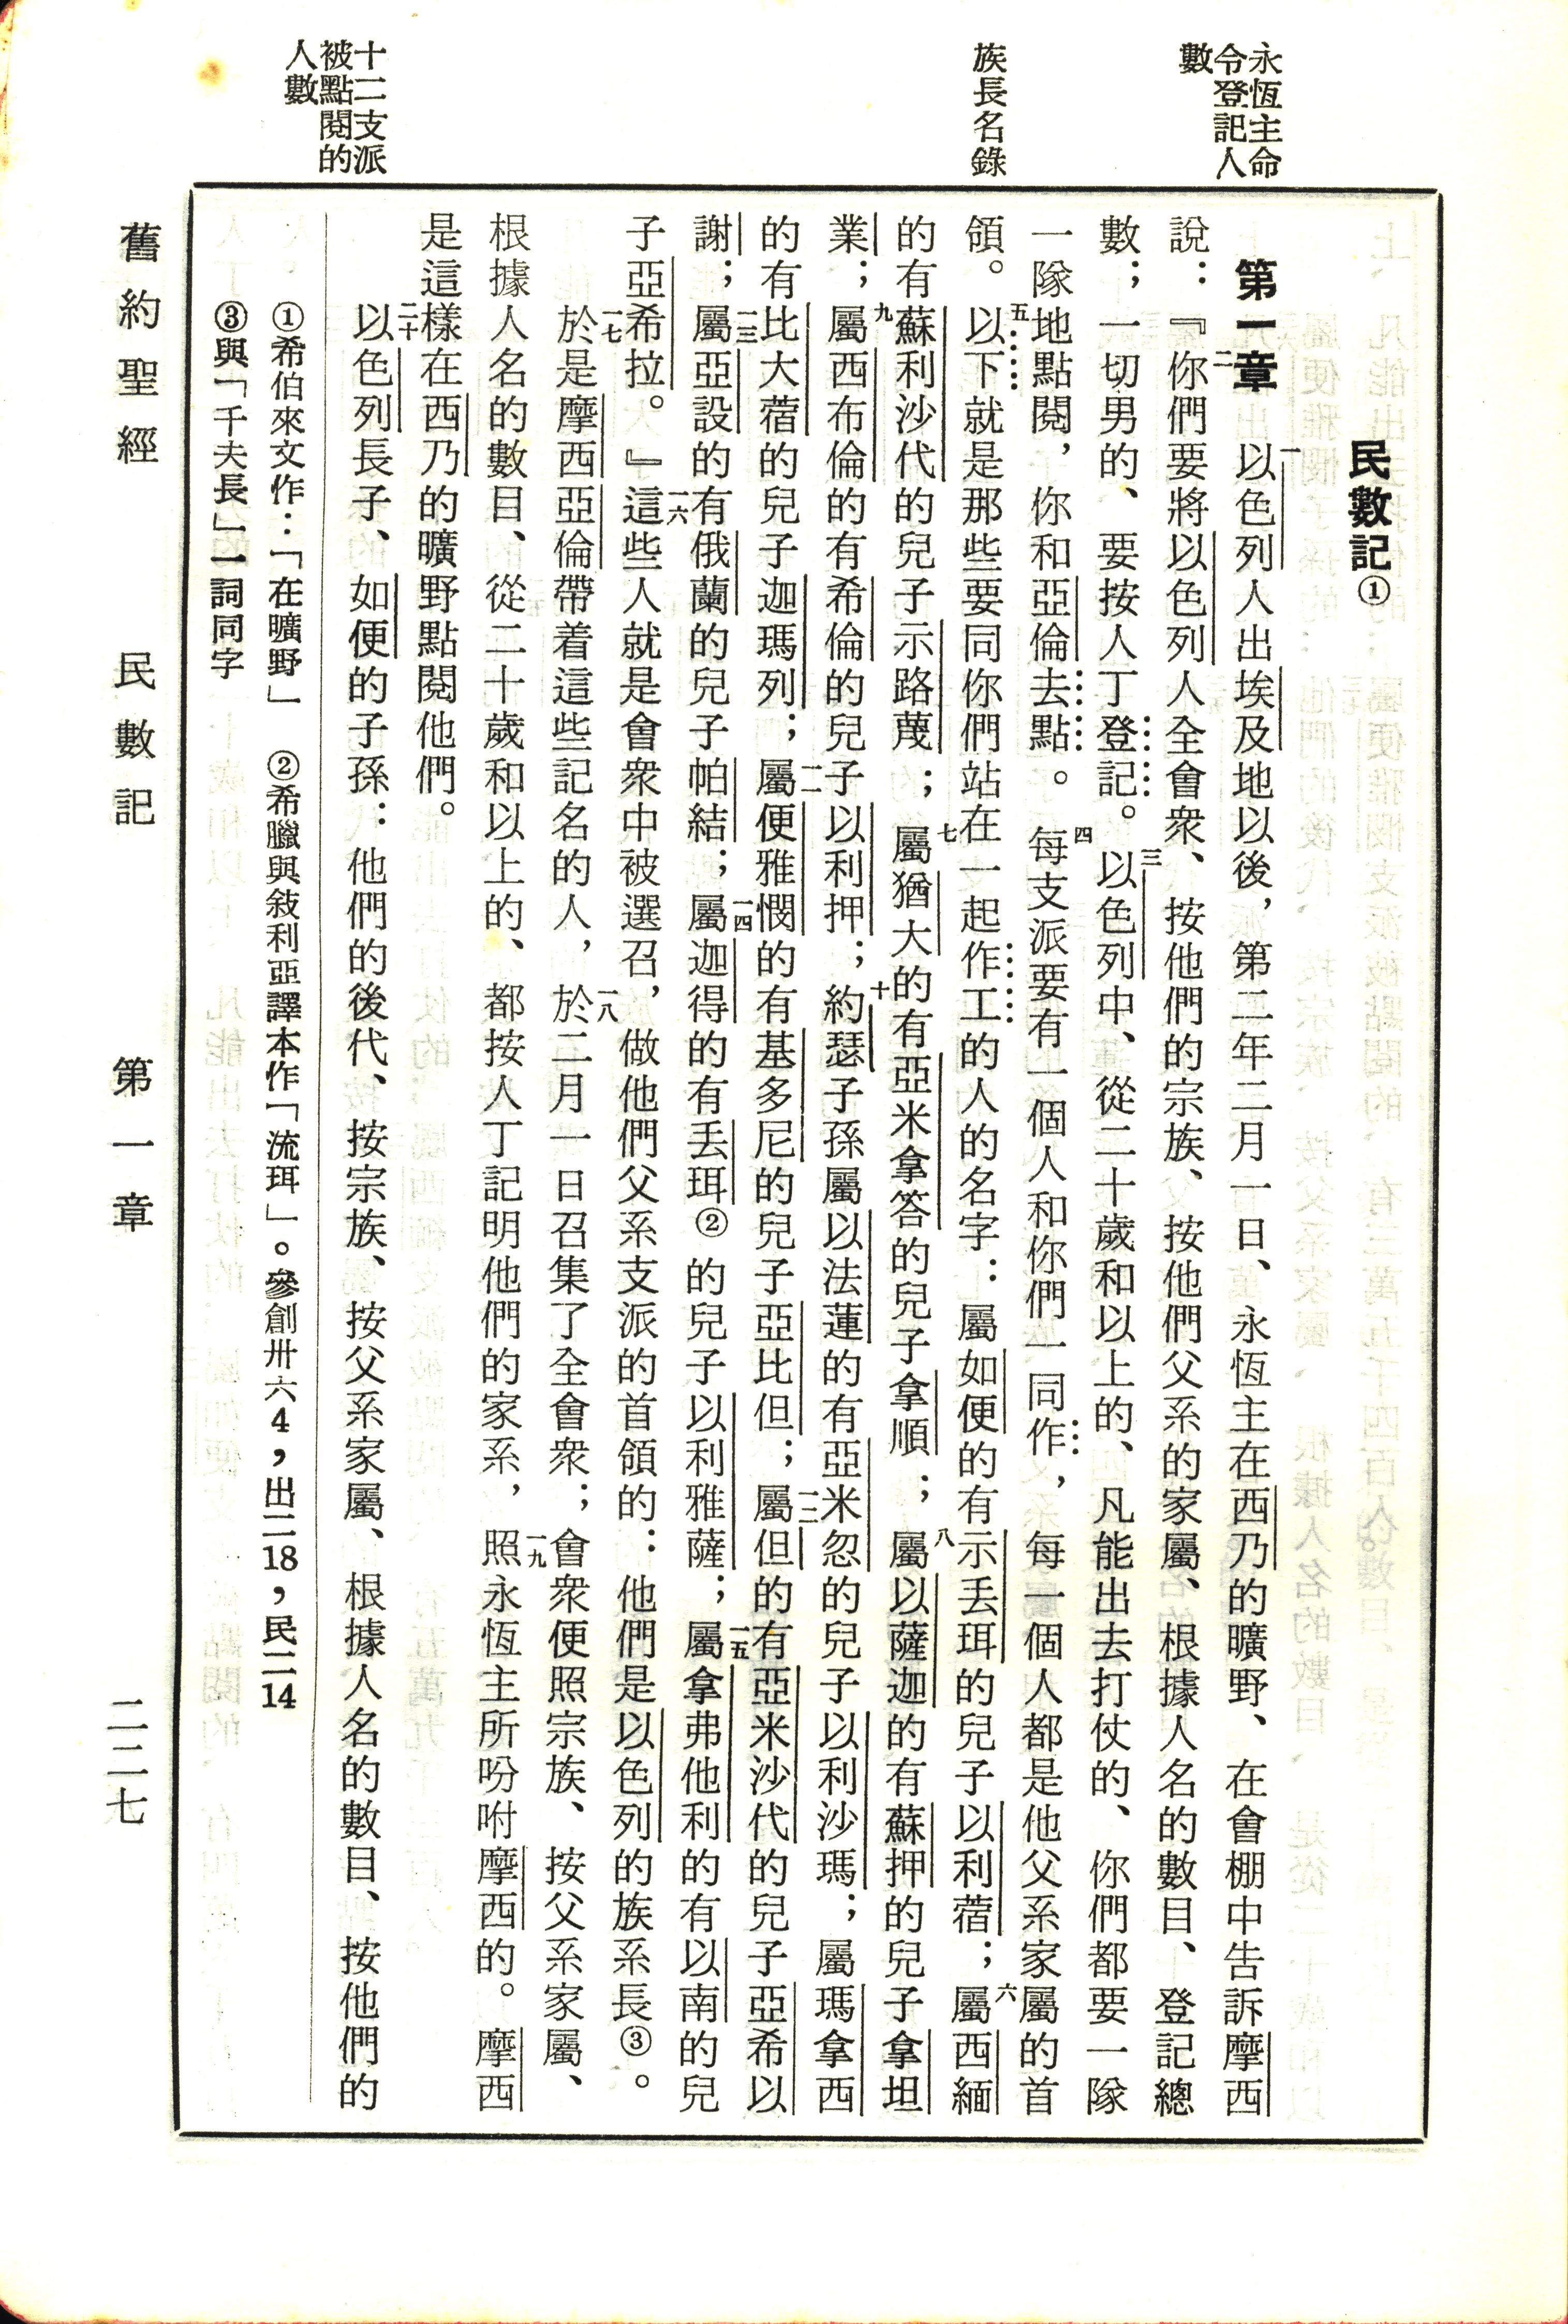 永恆主命
令登記人
數
族長名錄
十二支派
被點閱的
人數
民數記①
第一章 一以色列人出埃及地以後，第二年二月一日、永恆主在西乃的曠野、在會棚中告訴摩西
說：二『你們要將以色列人全會衆、按他們的宗族、按他們父系的家屬、根據人名的數目、登記總
數；一切男的、要按人丁登記。三以色列中、從二十歲和以上的、凡能出去打仗的、你們都要一隊
一隊地點閱，你和亞倫去點。四每支派要有一個人和你們一同作，每一個人都是他父系家屬的首
領。五以下就是那些要同你們站在一起作工的人的名字：屬如便的有示丟珥的兒子以利蓿；六屬西緬
的有蘇利沙代的兒子示路蔑；七屬猶大的有亞米拿答的兒子拿順；八屬以薩迦的有蘇押的兒子拿坦
業；九屬西布倫的有希倫的兒子以利押；十約瑟子孫屬以法蓮的有亞米忽的兒子以利沙瑪；屬瑪拿西
的有比大蓿的兒子迦瑪列；一一屬便雅憫的有基多尼的兒子亞比但；一二屬但的有亞米沙代的兒子亞希以
謝；一三屬亞設的有俄蘭的兒子帕結；一四屬迦得的有丟珥②的兒子以利雅薩；一五屬拿弗他利的有以南的兒
子亞希拉。』一六這些人就是會衆中被選召，做他們父系支派的首領的：他們是以色列的族系長③。
一七於是摩西亞倫帶着這些記名的人，一八於二月一日召集了全會衆；會衆便照宗族、按父系家屬、
根據人名的數目、從二十歲和以上的、都按人丁記明他們的家系，一九照永恆主所吩咐摩西的。摩西
是這樣在西乃的曠野點閱他們。
二十以色列長子、如便的子孫：他們的後代、按宗族、按父系家屬、根據人名的數目、按他們的
①希伯來文作：「在曠野」 ②希臘與敍利亞譯本作「流珥」。參創卅六4，出二18，民二14
③與「千夫長」一詞同字
舊約聖經 民數記 第一章 二二七